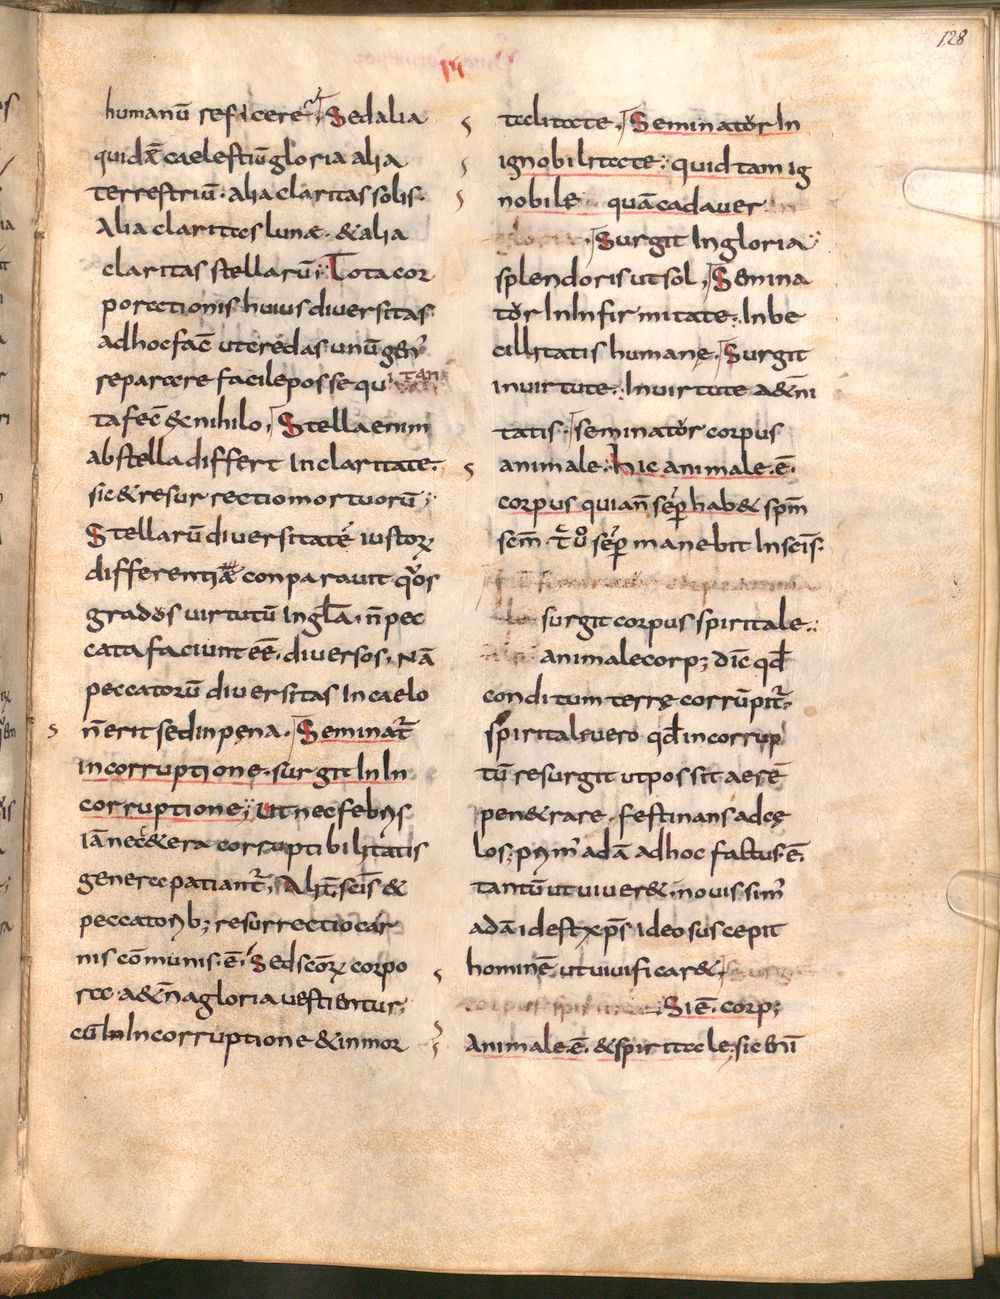 128
humanū reficere; Sed alia
quidā caelestiū gloria alia
terrestriū · alia claritas solis·
Alia claritas lunæ · & alia
claritas stellarū; Tota cor
porationis huius diversitas
ad hoc facī ut credas unū gen'
reparare facile posse qui tan
ta fec̄ & nihilo, Stella enim
ab stella differt In claritate.
sic & resurrectio mortuorū;
Stellarū diversitatē iustorꝝ
differentiæ conparavit q'os
grados virtutū In gl̄a · n̄ pec
cata faciunt eē · diversos · Nā
peccatorū diversitas In caelo
n̄ erit sed in pęna · Seminat̄
in corruptione · surgit In In
corruptione; Ut nec febris
iā nec & era corruptibilitatis
genera patiant̄, Alit̄ sc̄is &
peccatorib; resurrectio car
nis cōmunis · ē · Sed sc̄orꝝ corpo
ra · a&n̄a gloria vestientur;
cū In Incorruptione & inmor
talitate, Seminatōr In
ignobilitate; quid tam ig
nobile quā cadaver
Surgit In gloria
splendoris ut sol, Semina
tōr In Infirmitate. In be
cillitatis humanę. Surgit
in virtute. In virtute a&n̄i
tatis · seminatōr corpus
animale; hic animale · ē ·
corpus quia n̄ sēp hab& sp̄m
sc̄m · sēp manebit In sc̄is·
surgit corpus spiritale.
animale corp; dīc qd̄
conditum terrę corrūpit̄·
spiritale vero qd̄ incorrup
tū resurgit ut possit aerē
pen&rare · festinans ad cę
los; prim' adā ad hoc factus · ē ·
tantū ut viver& · novissim'
adā id est xp̄s ideo suscepit
hominē ut vivificar&,
Si ē · corp;
Animale · ē · & spiritale; sic